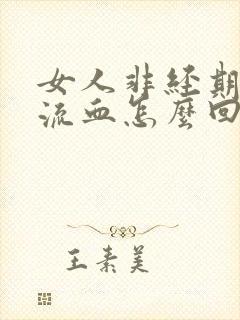 女人非经期
流血怎麼回
王素美